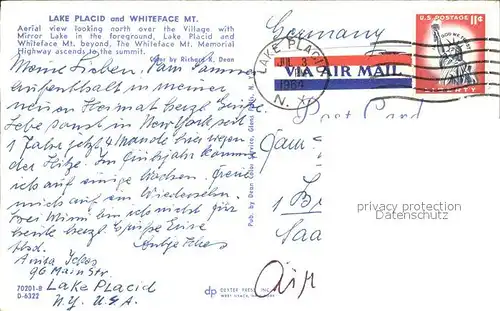 LAKE PLACID and WHITEFACE MT.
Aerial view looking north over the Village with
Mirror Lake in the foreground, Lake Placid and
Whiteface Mt. beyond. The Whiteface Mt. Memorial
Highway ascends to the summit.
Color by Richard K. Dean
Germany
LAKE PLACID
JUL 3
1964
N.Y.
VIA AIR MAIL
U.S. POSTAGE 11¢
LIBERTY
Meine Lieben. Zum Sommer
aufenthalt in meiner
neuen Heimat herzl. Grüße
Lebe sonst in New York seit
1 Jahr jetzt 4 Monate hier wegen
der Hitze. Im Frühjahr komme
ich auf einige Wochen. Freue
mich auf ein Wiedersehn.
bin ich nicht für
heute herzl. Grüße Eure
Anita
96 Main Str.
Lake Placid
N.Y. U.S.A.
Post Card
Fam.
1 B
Saa
Air
privacy protection
Datenschutz
Pub. by Dean Color Service, Glens Falls, N. Y.
70201-B
D-6322
dp DEXTER PRESS, INC.
WEST NYACK, NEW YORK